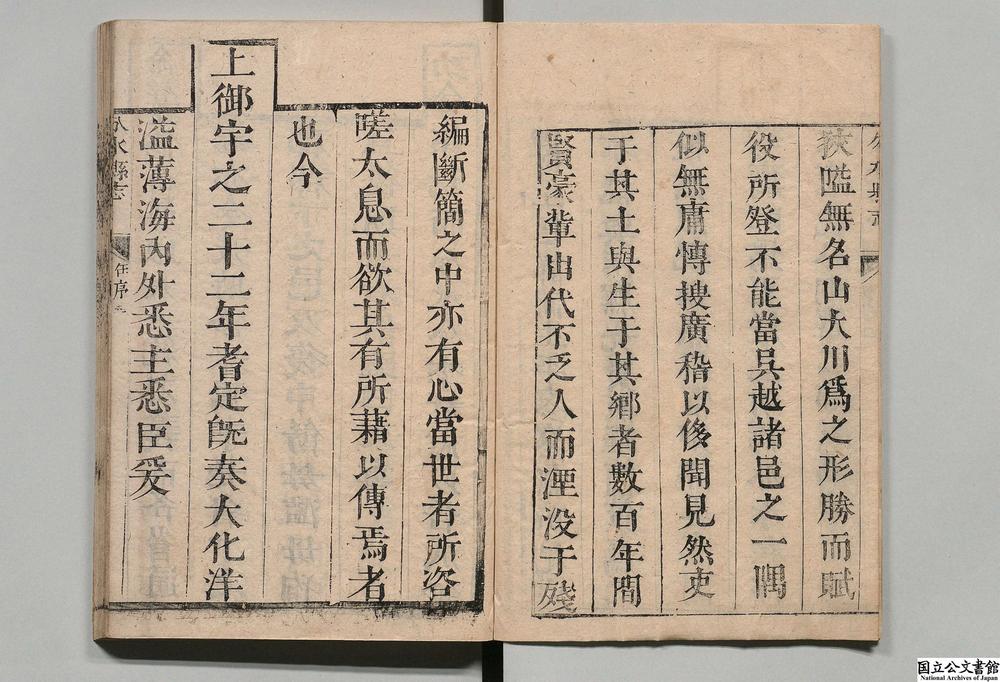 狹嗌無名山大川爲之形勝而賦
役所登不能當吳越諸邑之一隅
似無庸慱搜廣稽以侈聞見然吏
于其土與生于其鄉者數百年間
賢豪輩出代不乏人而湮没于殘
編斷簡之中亦有心當世者所咨
嗟太息而欲其有所藉以傳焉者
也今
上御宇之二十二年耆定旣奏大化洋
溢薄海內外悉主悉臣爰
水縣志
任序
国立公文書館
National Archives of Japan